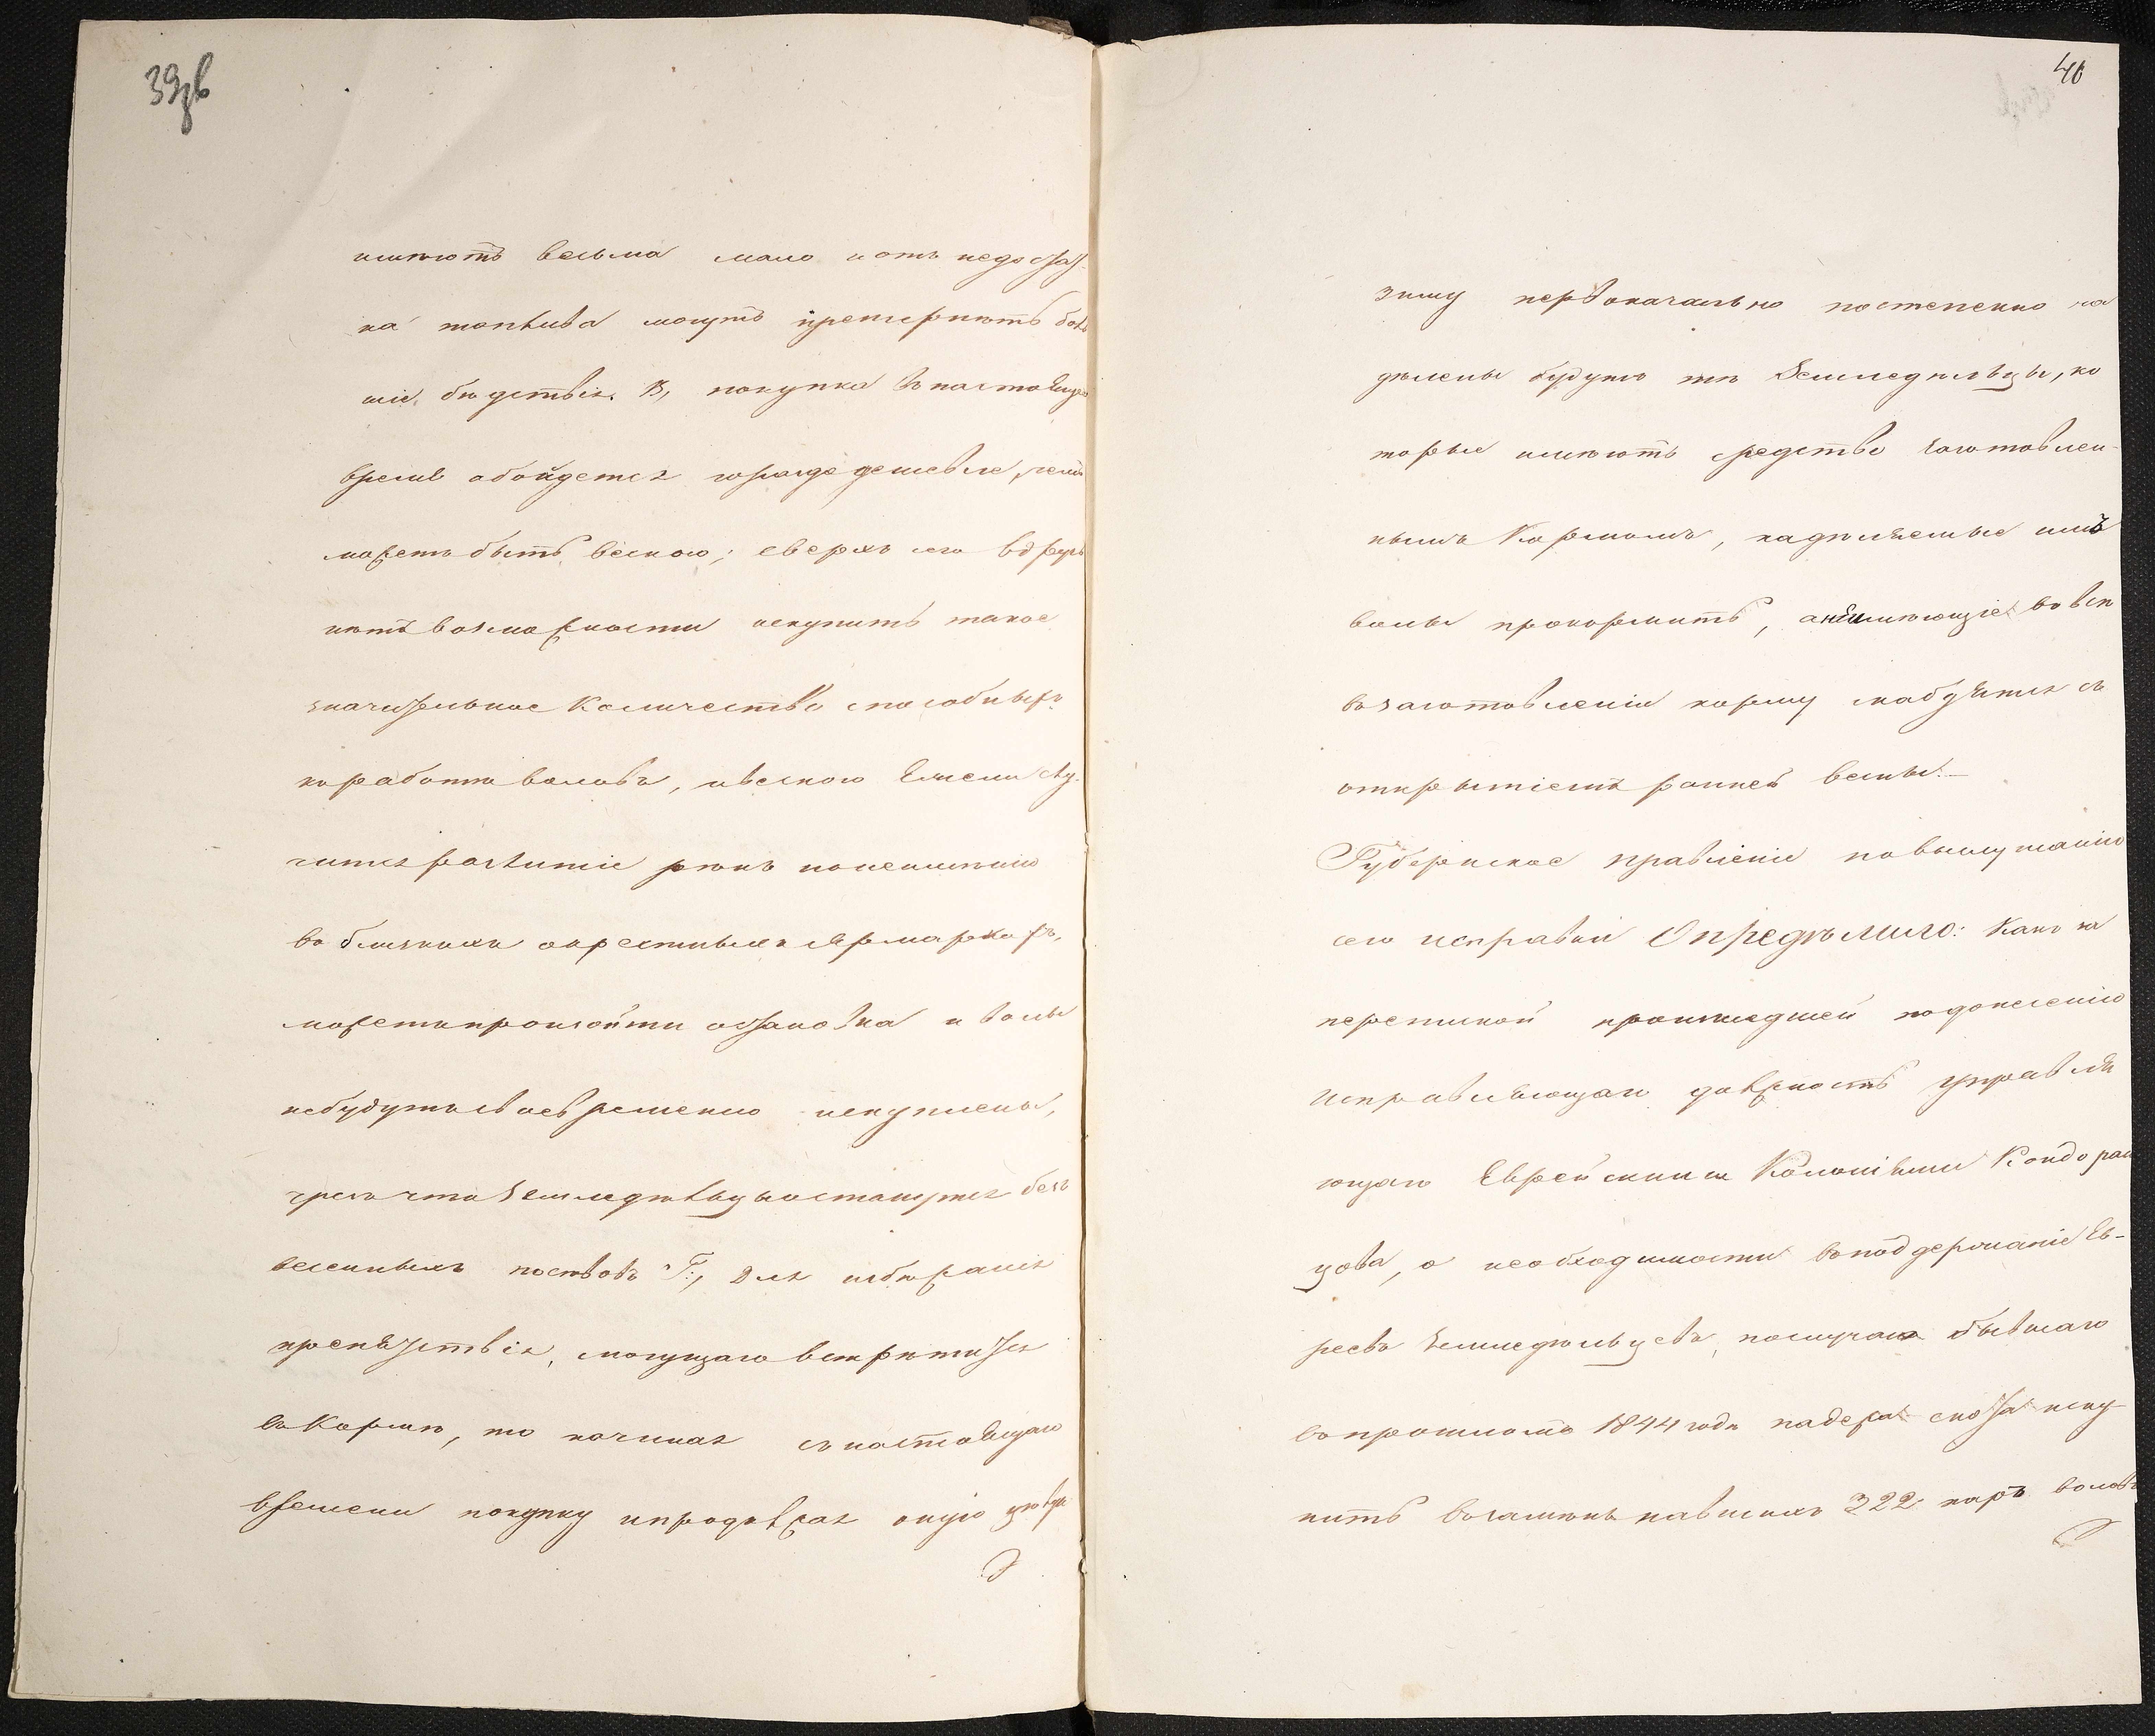 39зв
имѣютъ весьма мало и отъ недостат-
ка топлива могутъ претерпѣть боль
шіе бѣдствія. В, покупка въ настоящее
время обойдется гораздо дешевле, чемъ
можетъ быть весною; сверхъ сего вдругъ
нѣтъ возможности искупить такое
значительное Количество способныхъ
къ работѣ воловъ, а весною Ежели слу-
чится разлитіе рѣкъ по неимѣнію
въ близкихъ окрестныхъ Ярмаркахъ,
можетъ произойти остановка и волы
небудутъ своевременно искуплены,
чрезъ что Земледѣльцы останутся безъ
весеннихъ посѣвовъ Г., Для избѣжанія
препятствія, могущаго встрѣтиться
въ Кормѣ, то начиная съ настоящаго
времени покупку и продолжая оную чрезъ
40
зиму первоначально постепенно на
дѣлены будутъ тѣ Земледѣльцы, ко
торые имѣютъ средство заготовлен-
нымъ Кормомъ, надѣляемые имъ
волы прокормить, а неимѣющіе во все
въ заготовленіи корму снабдятся съ
открытіемъ ранней весны.—
Губернское правленіе по выслушаніи
сего исправки Опредѣлило: Какъ на
перепиской происшедшей по донесенію
Исправляющаго должность управля
ющаго Еврейскими Колоніями Кондора
цова, о необходимости въ поддержаніе Ев-
реевъ земледѣльцевъ, по случаю бывшаго
въ прошломъ 1844 годѣ падежа скота иску-
пить въ замѣнъ павшихъ 322 паръ воловъ